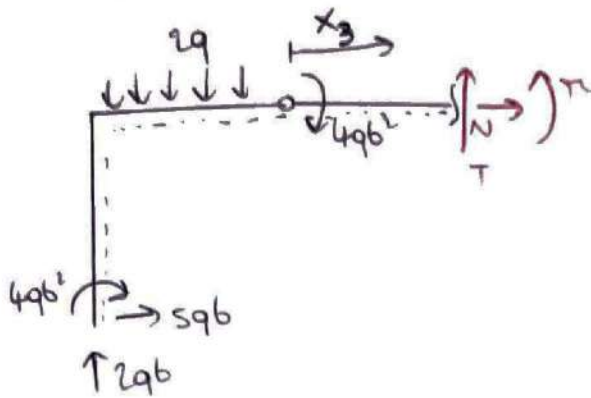 2q
x₃
4qb²
N
T
M
4qb²
5qb
2qb